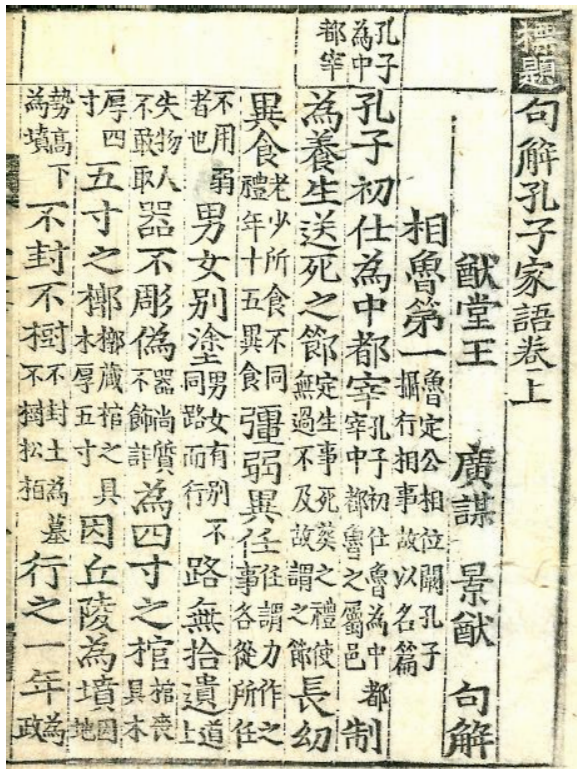 標題句解孔子家語卷上
猷堂王 廣謀 景猷 句解
相魯第一 魯定公相位闕孔子攝行相事故以名篇
孔子為中都宰
孔子初仕為中都宰 孔子初仕魯為中都宰中都魯之屬邑 制
為養生送死之節 定生事死葬之禮使無過不及故謂之節 長幼
異食 老少所食不同禮年十五異食 彊弱異任 任謂力作之事各從所任
不用弱者也 男女別塗 男女有別不同路而行 路無拾遺 道上
失物人不敢取 器不彫偽 器尚質不飾詐 為四寸之棺 棺喪具木
厚四寸 五寸之槨 槨藏棺之具木厚五寸 因丘陵為墳 因地
勢高下為墳 不封不樹 不封土為墓不樹松栢 行之一年 為政